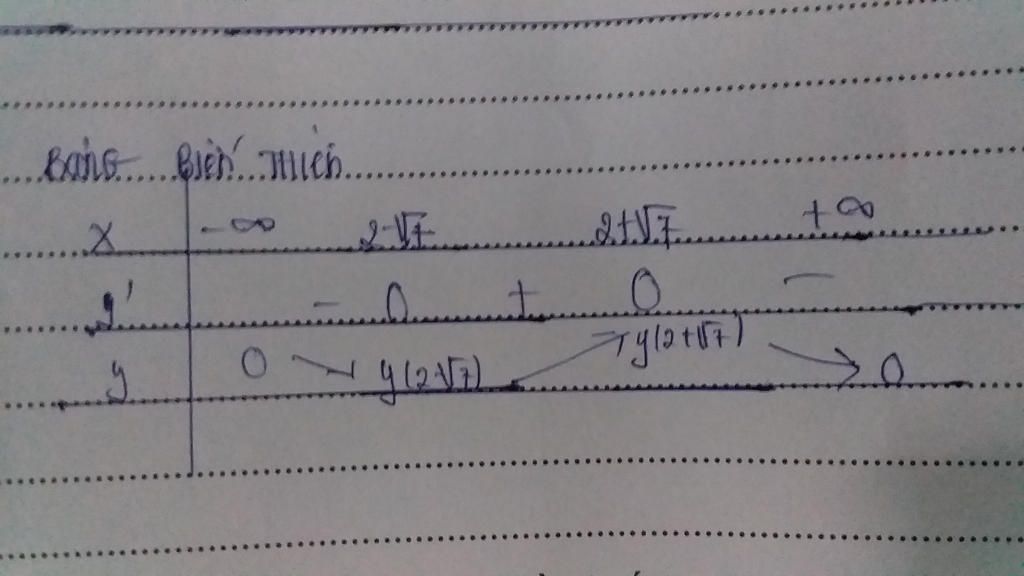 BẢNG BIẾN THIÊN
x -∞ 2-√7 2+√7 +∞
y' - 0 + 0 -
y 0 ↘ y(2-√7) ↗ y(2+√7) ↘ 0